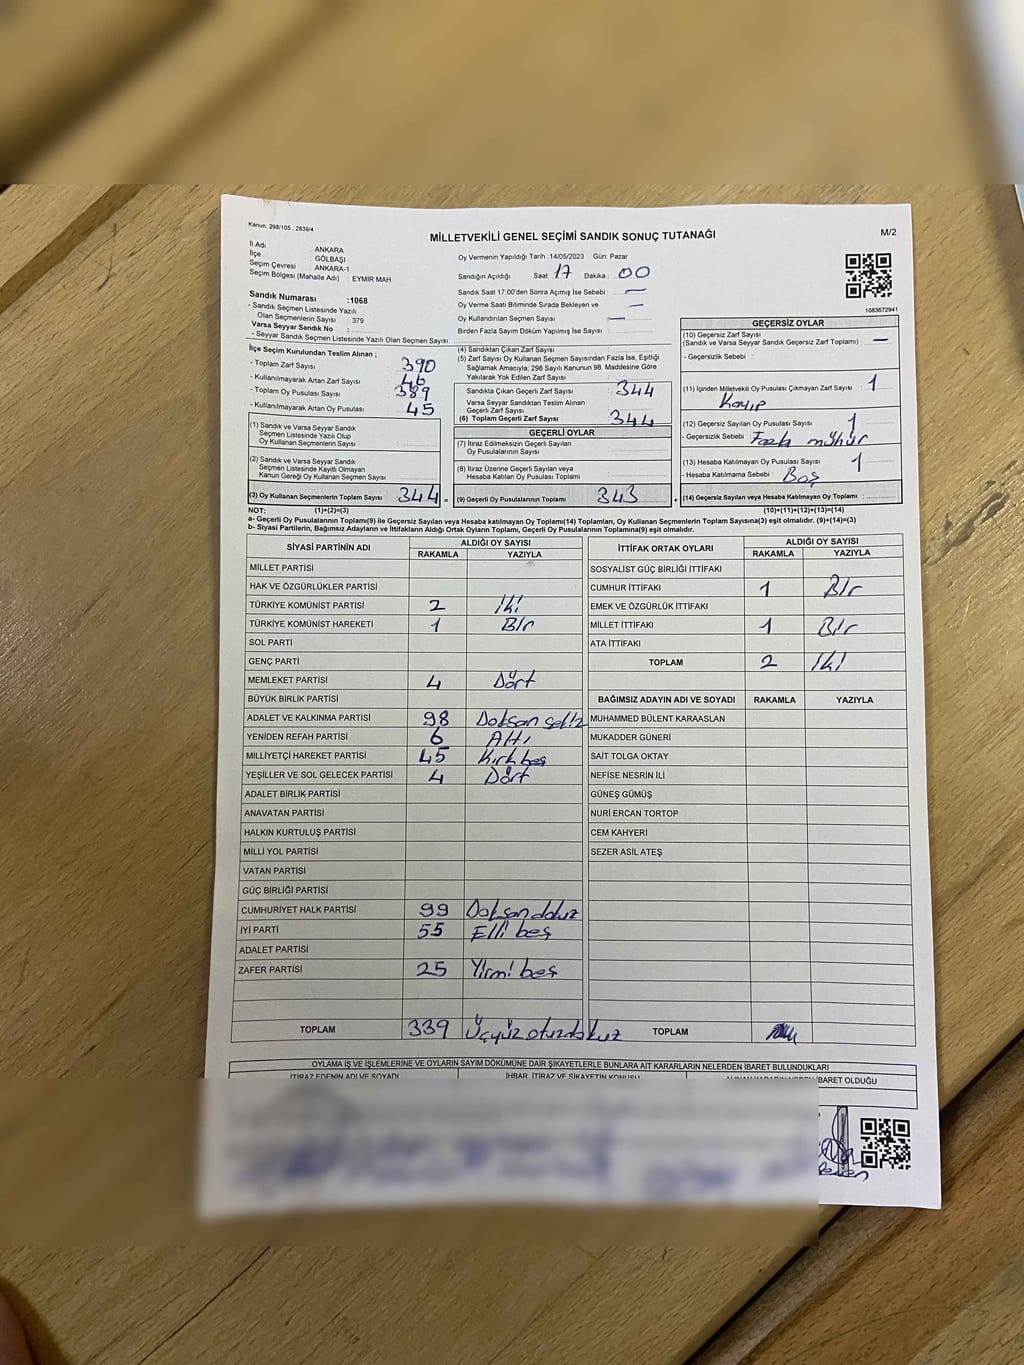 Kanun: 298/105 , 2839/4
M/2
MİLLETVEKİLİ GENEL SEÇİMİ SANDIK SONUÇ TUTANAĞI
İl Adı : ANKARA
İlçe : GÖLBAŞI
Seçim Çevresi : ANKARA-1
Seçim Bölgesi (Mahalle Adı) : EYMİR MAH
Sandık Numarası :1068
- Sandık Seçmen Listesinde Yazılı
Olan Seçmenlerin Sayısı : 379
Varsa Seyyar Sandık No :
- Seyyar Sandık Seçmen Listesinde Yazılı Olan Seçmen Sayısı :
Oy Vermenin Yapıldığı Tarih :14/05/2023 Gün: Pazar
Sandığın Açıldığı Saat: 17 Dakika : 00
Sandık Saat 17:00'den Sonra Açılmış İse Sebebi : —
Oy Verme Saati Bitiminde Sırada Bekleyen ve —
Oy Kullandırılan Seçmen Sayısı : —
Birden Fazla Sayım Döküm Yapılmış İse Sayısı :
1083672941
İlçe Seçim Kurulundan Teslim Alınan ;
- Toplam Zarf Sayısı : 390
- Kullanılmayarak Artan Zarf Sayısı : 46
- Toplam Oy Pusulası Sayısı : 389
- Kullanılmayarak Artan Oy Pusulası : 45
(1) Sandık ve Varsa Seyyar Sandık
Seçmen Listesinde Yazılı Olup
Oy Kullanan Seçmenlerin Sayısı :
(2) Sandık ve Varsa Seyyar Sandık
Seçmen Listesinde Kayıtlı Olmayan
Kanun Gereği Oy Kullanan Seçmen Sayısı
(3) Oy Kullanan Seçmenlerin Toplam Sayısı : 344 =
(4) Sandıktan Çıkan Zarf Sayısı
(5) Zarf Sayısı Oy Kullanan Seçmen Sayısından Fazla İse, Eşitliği
Sağlamak Amacıyla, 298 Sayılı Kanunun 98. Maddesine Göre
Yakılarak Yok Edilen Zarf Sayısı
Sandıkta Çıkan Geçerli Zarf Sayısı : 344
Varsa Seyyar Sandıktan Teslim Alınan
Geçerli Zarf Sayısı
(6) Toplam Geçerli Zarf Sayısı : 344
GEÇERLİ OYLAR
(7) İtiraz Edilmeksizin Geçerli Sayılan
Oy Pusulalarının Sayısı
(8) İtiraz Üzerine Geçerli Sayılan veya
Hesaba Katılan Oy Pusulası Toplamı
(9) Geçerli Oy Pusulalarının Toplamı : 343 +
GEÇERSİZ OYLAR
(10) Geçersiz Zarf Sayısı
(Sandık ve Varsa Seyyar Sandık Geçersiz Zarf Toplamı) : —
- Geçersizlik Sebebi :
(11) İçinden Milletvekili Oy Pusulası Çıkmayan Zarf Sayısı : 1
Kayıp
(12) Geçersiz Sayılan Oy Pusulası Sayısı : 1
- Geçersizlik Sebebi : Fazla mühür
(13) Hesaba Katılmayan Oy Pusulası Sayısı 1
- Hesaba Katılmama Sebebi : Boş
(14) Geçersiz Sayılan veya Hesaba Katılmayan Oy Toplamı :
NOT: (1)+(2)=(3) (10)+(11)+(12)+(13)=(14)
a- Geçerli Oy Pusulalarının Toplamı(9) ile Geçersiz Sayılan veya Hesaba katılmayan Oy Toplamı(14) Toplamları, Oy Kullanan Seçmenlerin Toplam Sayısına(3) eşit olmalıdır. (9)+(14)=(3)
b- Siyasi Partilerin, Bağımsız Adayların ve İttifakların Aldığı Ortak Oyların Toplamı, Geçerli Oy Pusulalarının Toplamına(9) eşit olmalıdır.
SİYASİ PARTİNİN ADI ALDIĞI OY SAYISI
RAKAMLA YAZIYLA
MİLLET PARTİSİ
HAK VE ÖZGÜRLÜKLER PARTİSİ
TÜRKİYE KOMÜNİST PARTİSİ 2 İki
TÜRKİYE KOMÜNİST HAREKETİ 1 Bir
SOL PARTİ
GENÇ PARTİ
MEMLEKET PARTİSİ 4 Dört
BÜYÜK BİRLİK PARTİSİ
ADALET VE KALKINMA PARTİSİ 98 Doksan sekiz
YENİDEN REFAH PARTİSİ 6 Altı
MİLLİYETÇİ HAREKET PARTİSİ 45 Kırk beş
YEŞİLLER VE SOL GELECEK PARTİSİ 4 Dört
ADALET BİRLİK PARTİSİ
ANAVATAN PARTİSİ
HALKIN KURTULUŞ PARTİSİ
MİLLİ YOL PARTİSİ
VATAN PARTİSİ
GÜÇ BİRLİĞİ PARTİSİ
CUMHURİYET HALK PARTİSİ 99 Doksan dokuz
İYİ PARTİ 55 Elli beş
ADALET PARTİSİ
ZAFER PARTİSİ 25 Yirmi beş
TOPLAM 339 Üçyüz otuzdokuz
İTTİFAK ORTAK OYLARI ALDIĞI OY SAYISI
RAKAMLA YAZIYLA
SOSYALİST GÜÇ BİRLİĞİ İTTİFAKI
CUMHUR İTTİFAKI 1 Bir
EMEK VE ÖZGÜRLÜK İTTİFAKI
MİLLET İTTİFAKI 1 Bir
ATA İTTİFAKI
TOPLAM 2 İki
BAĞIMSIZ ADAYIN ADI VE SOYADI RAKAMLA YAZIYLA
MUHAMMED BÜLENT KARAASLAN
MUKADDER GÜNERİ
SAİT TOLGA OKTAY
NEFİSE NESRİN İLİ
GÜNEŞ GÜMÜŞ
NURİ ERCAN TORTOP
CEM KAHYERİ
SEZER ASİL ATEŞ
TOPLAM
OYLAMA İŞ VE İŞLEMLERİNE VE OYLARIN SAYIM DÖKÜMÜNE DAİR ŞİKAYETLERLE BUNLARA AİT KARARLARIN NELERDEN İBARET BULUNDUKLARI
İTİRAZ EDENİN ADI VE SOYADI İHBAR, İTİRAZ VE ŞİKAYETİN KONUSU İBARET OLDUĞU